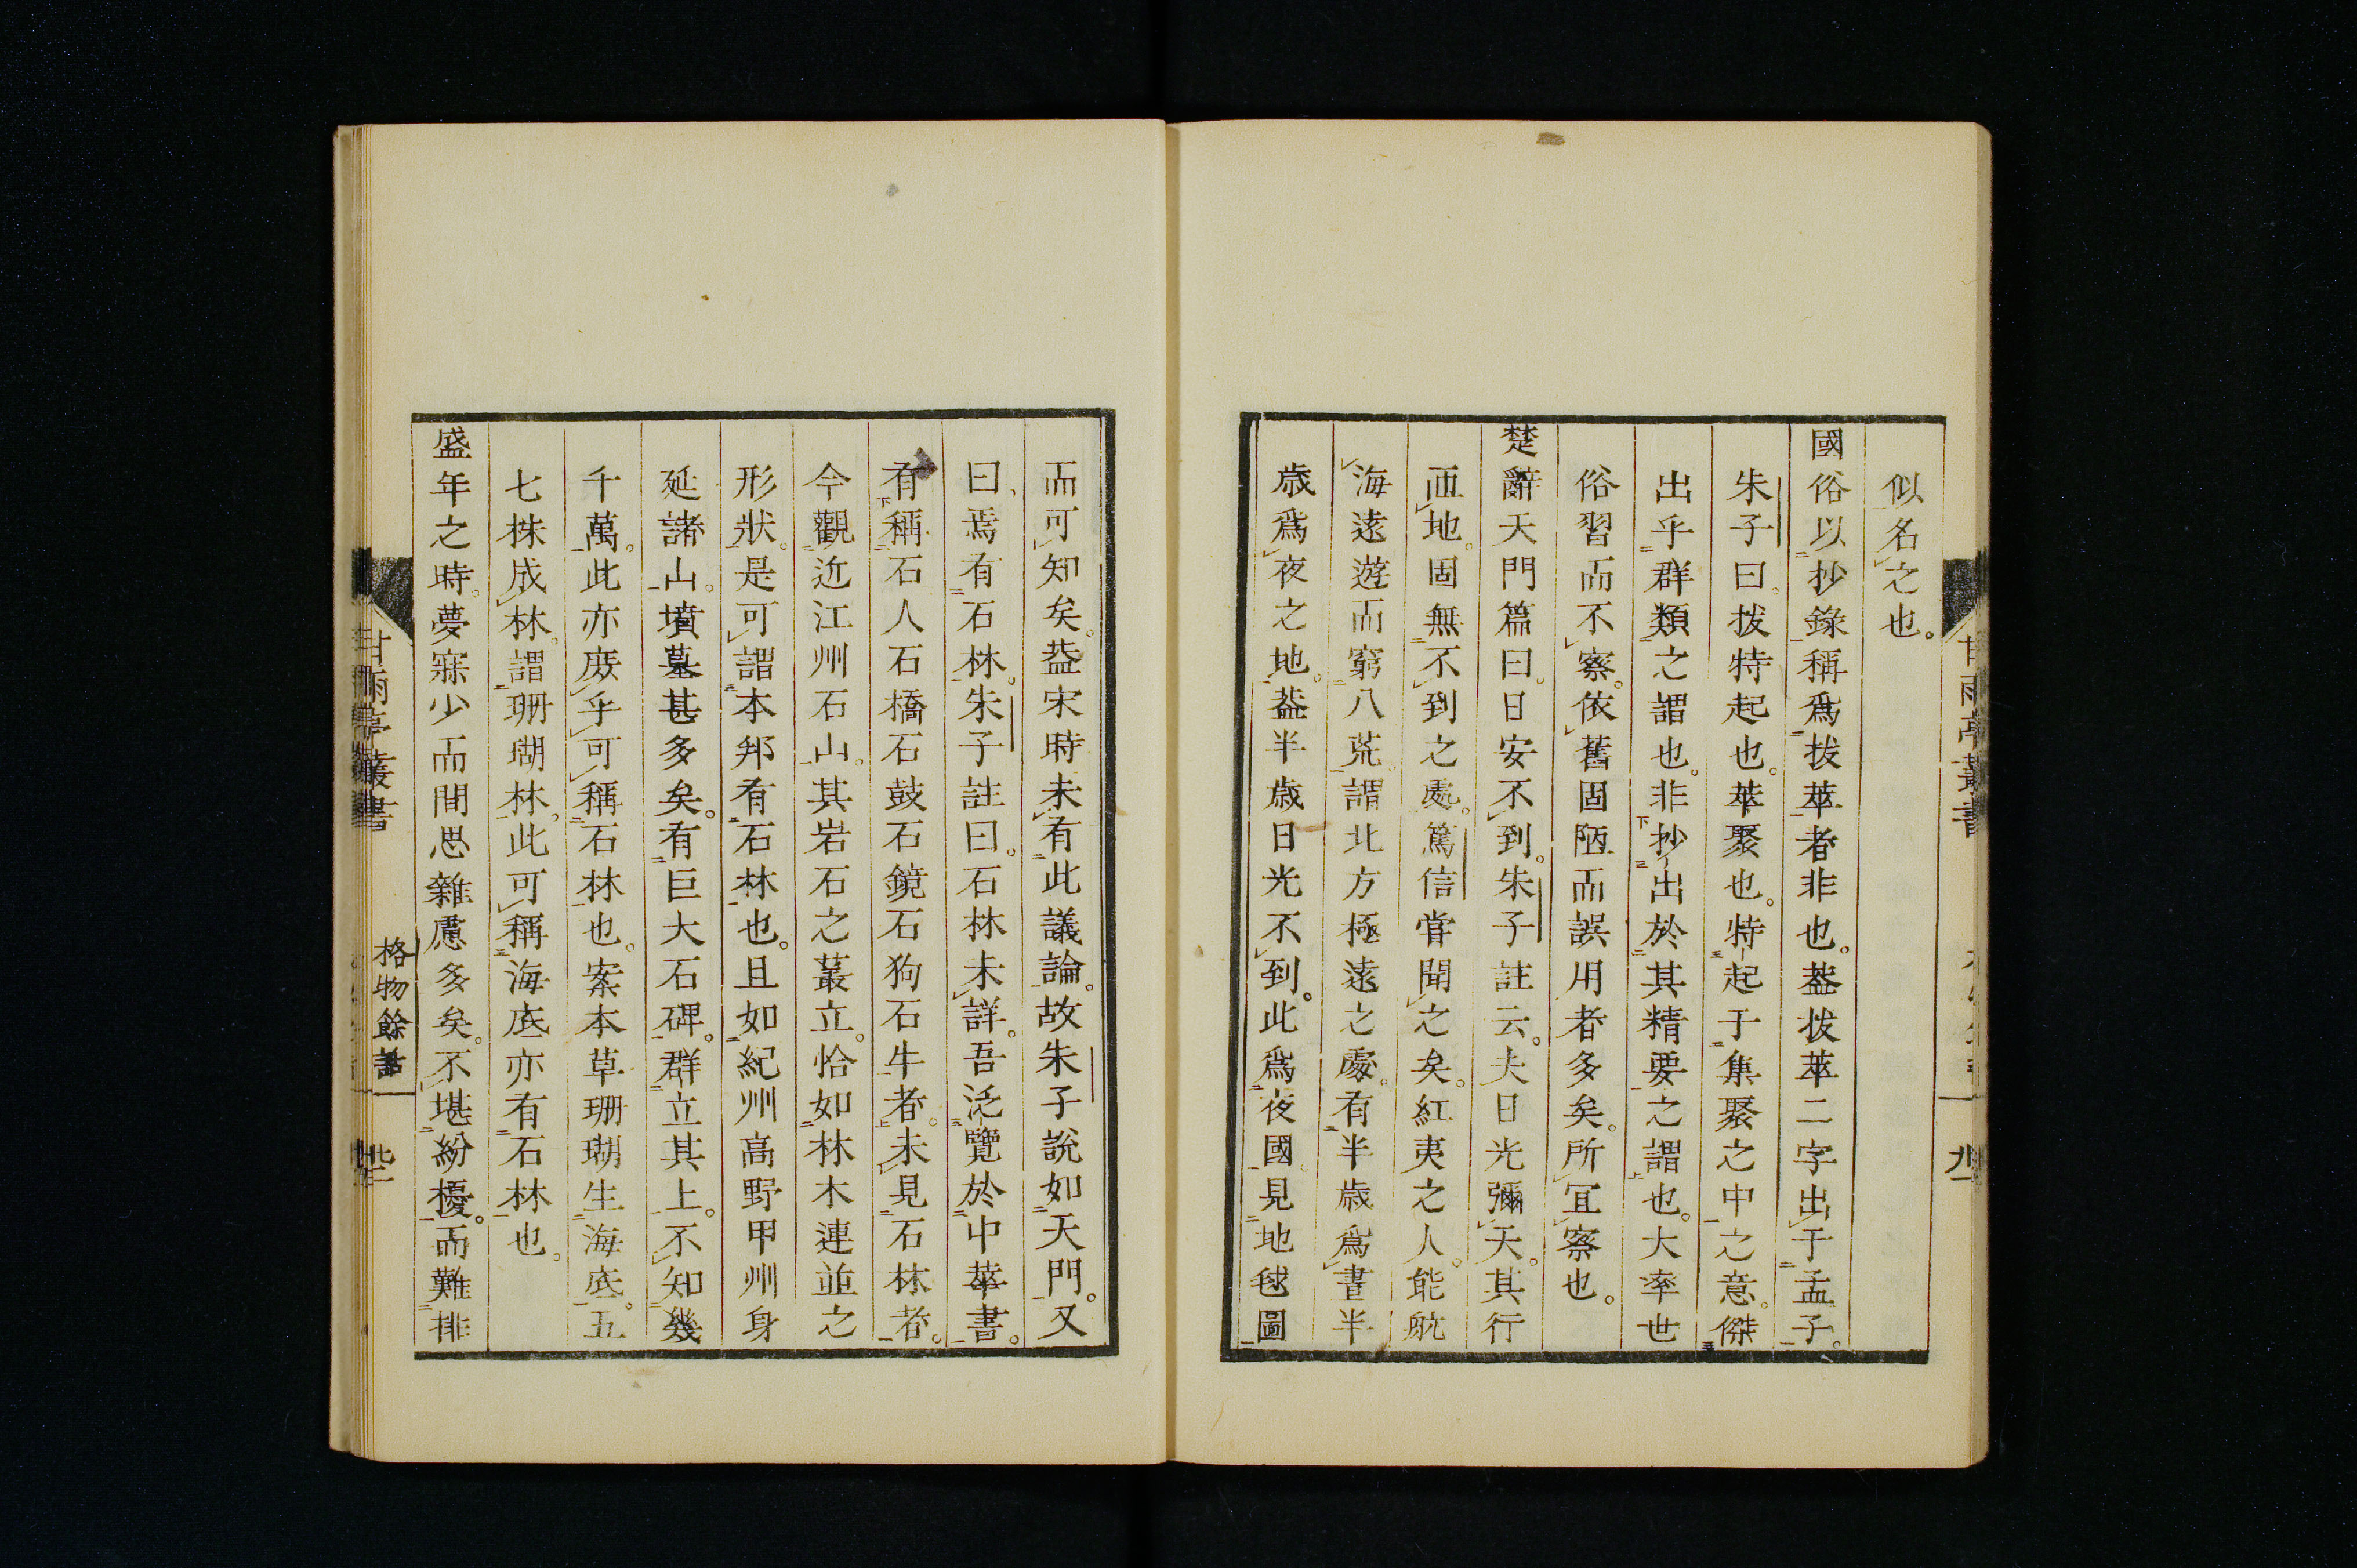 似名之也。
國俗以抄錄稱爲拔萃者非也。葢拔萃二字出于孟子。
朱子曰。拔特起也。萃聚也。特起于集聚之中之意。傑
出乎群類之謂也。非抄出於其精要之謂也。大率世
俗習而不察。依舊固陋而誤用者多矣。所宜察也。
楚辭天門篇曰。日安不到。朱子註云。夫日光彌天。其行
匝地。固無不到之處。篤信嘗聞之矣。紅夷之人。能航
海遠遊而窮八荒。謂北方極遠之處。有半歲爲晝半
歲爲夜之地。葢半歲日光不到。此爲夜國見地毬圖
而可知矣。葢宋時未有此議論。故朱子說如天門。又
曰。焉有石林。朱子註曰。石林未詳。吾泛覽於中華書。
有稱石人石橋石鼓石鏡石狗石牛者。未見石林者。
今觀近江州石山。其岩石之叢立。恰如林木連並之
形狀。是可謂本邦有石林也。且如紀州高野甲州身
延諸山。墳墓甚多矣。有巨大石碑。群立其上。不知幾
千萬。此亦庶乎可稱石林也。案本草珊瑚生海底。五
七株成林。謂珊瑚林。此可稱海底亦有石林也。
盛年之時。夢寐少而間思雜慮多矣。不堪紛擾。而難排
甘雨亭叢書
格物餘話